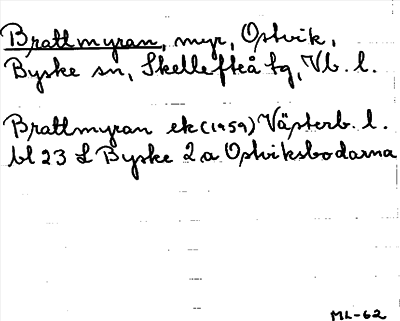 Brattmyran, myr, Ostvik,
Byske sn, Skellefteå tg, Vb. l.
Brattmyran ek (1959) Västerb. l.
bl 23 L Byske 2 a Ostviksbodarna
ML-62